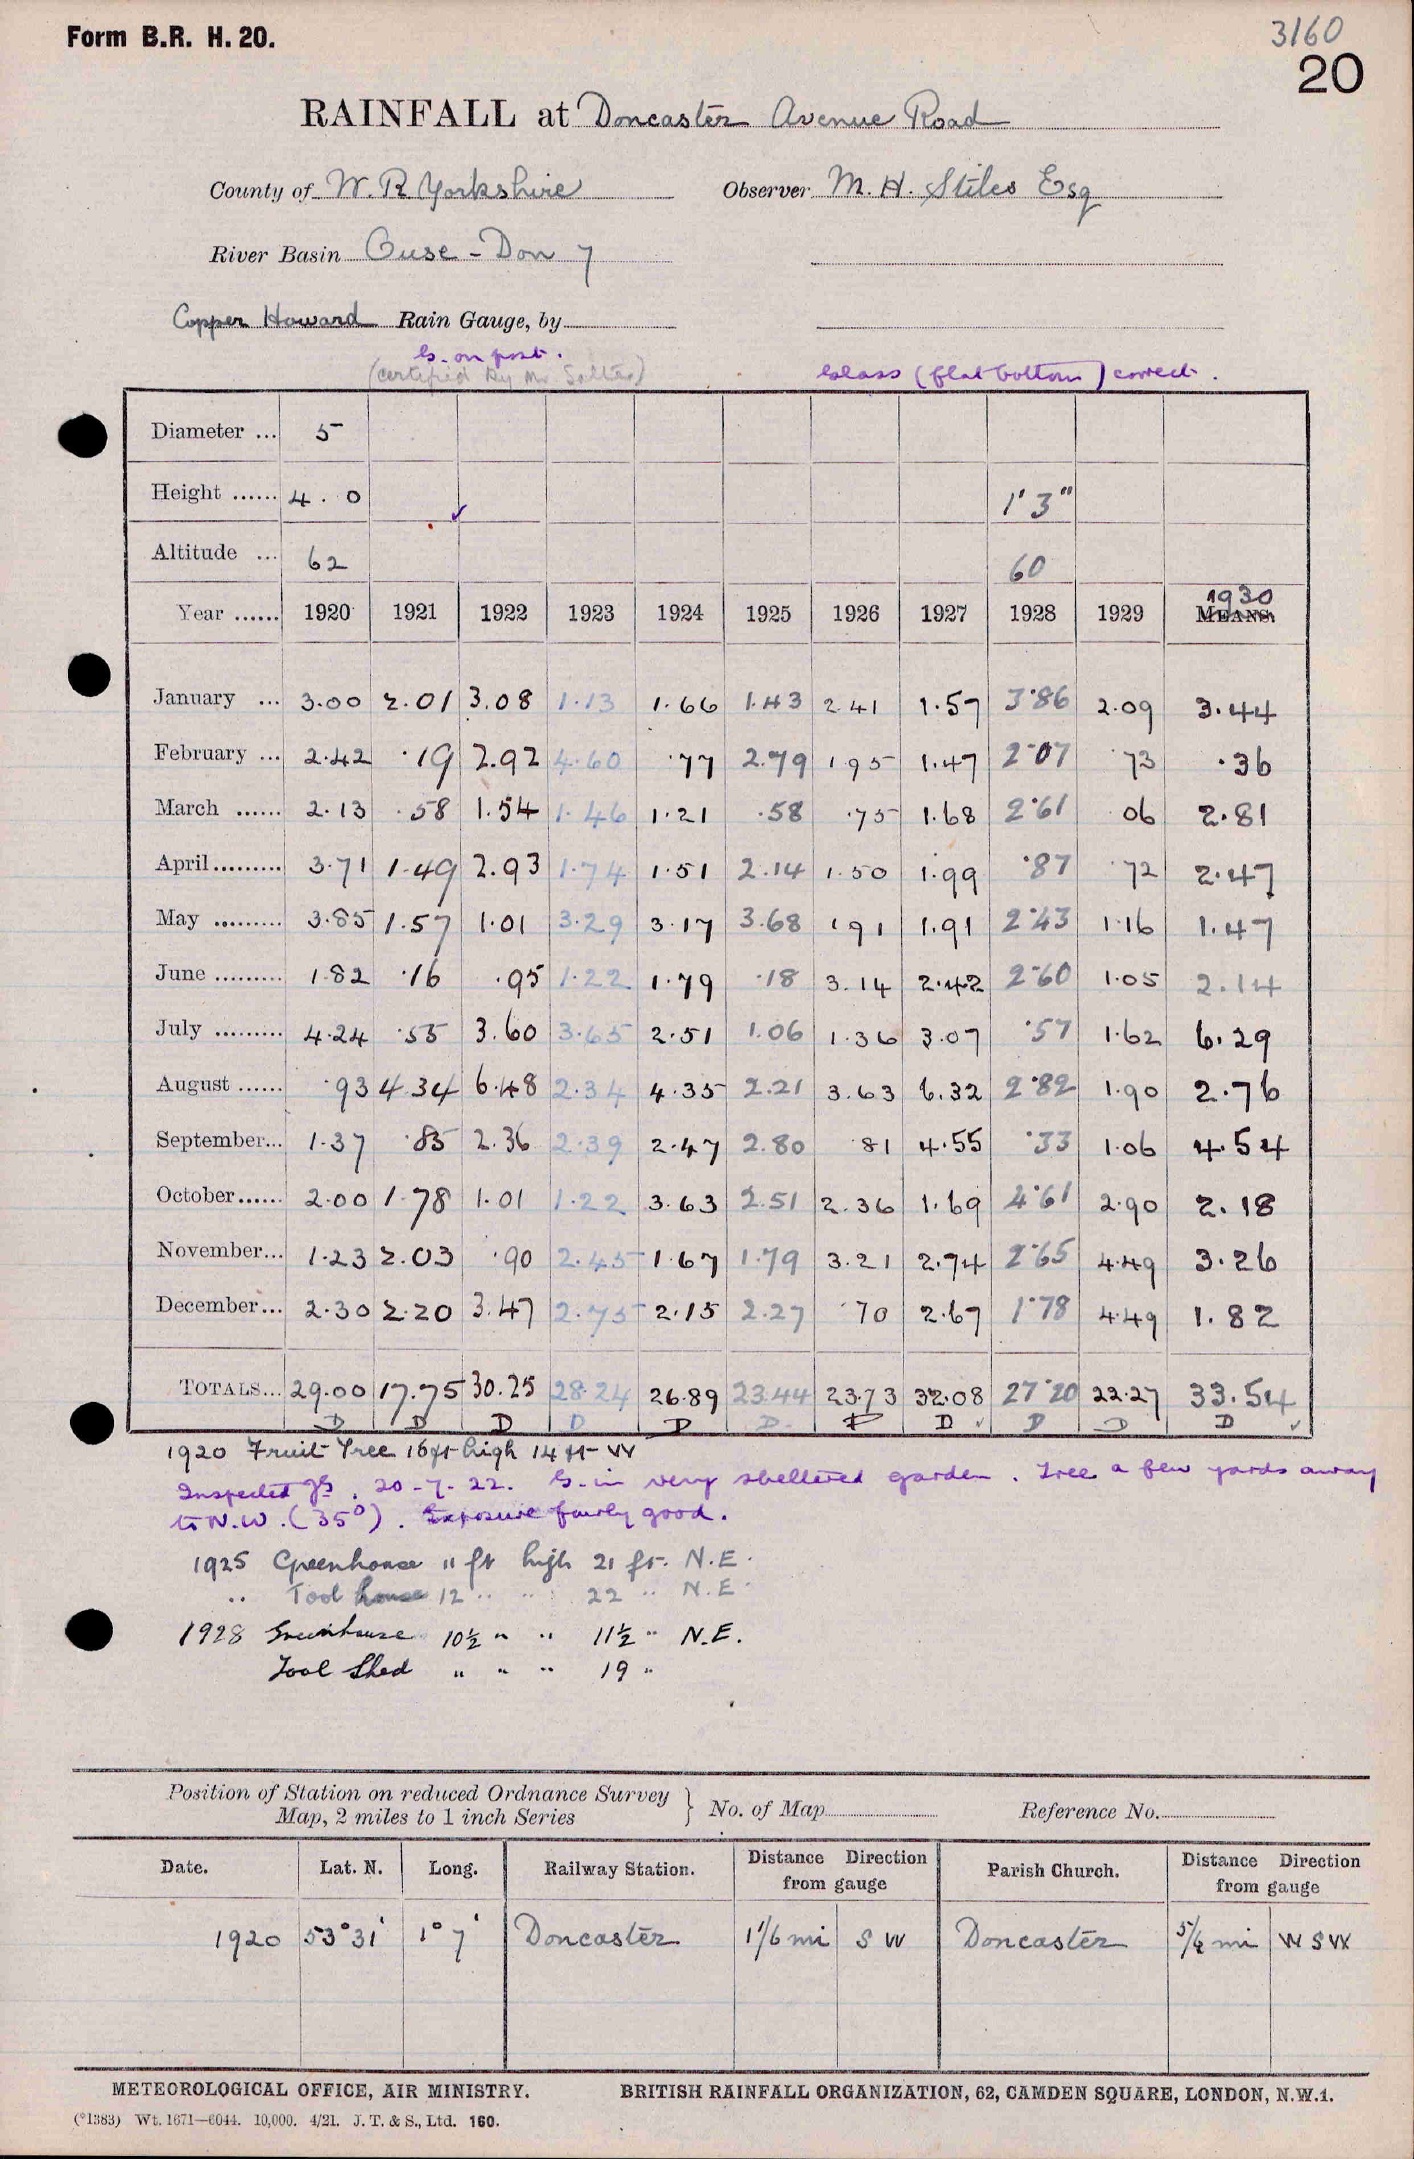 Form B.R. H. 20.
3160
20
RAINFALL at Doncaster Avenue Road
County of W. R Yorkshire Observer M. H. Stiles Esq
River Basin Ouse - Don 7
Copper Howard Rain Gauge, by
G. on post.
(certified by Mr Salter) Glass (flat bottom) correct.
Diameter ... 5
Height ...... 4 . 0 1' 3"
Altitude ... 62 60
Year ...... 1920 1921 1922 1923 1924 1925 1926 1927 1928 1929 1930 MEANS.
January ... 3.00 2.01 3.08 1.13 1.66 1.43 2 41 1.57 3.86 2.09 3.44
February ... 2.42 .19 2.92 4.60 .77 2.79 1 95 1.47 2.07 73 .36
March ...... 2.13 .58 1.54 1.46 1.21 .58 .75 1.68 2.61 06 2.81
April ......... 3.71 1.49 2.93 1.74 1.51 2.14 1.50 1.99 .87 72 2.47
May ......... 3.85 1.57 1.01 3.29 3.17 3.68 1 91 1.91 2.43 1.16 1.47
June ......... 1.82 .16 .95 1.22 1.79 .18 3.14 2.42 2.60 1.05 2.14
July ......... 4.24 .55 3.60 3.65 2.51 1.06 1.36 3.07 .57 1.62 6.29
August ...... .93 4.34 6.48 2.34 4.35 2.21 3.63 6.32 2.82 1.90 2.76
September... 1.37 .85 2.36 2.39 2.47 2.80 81 4.55 .33 1.06 4.54
October...... 2.00 1.78 1.01 1.22 3.63 2.51 2.36 1.69 4.61 2.90 2.18
November... 1.23 2.03 .90 2.45 1.67 1.79 3.21 2.74 2.65 4.49 3.26
December... 2.30 2.20 3.47 2.75 2.15 2.27 .70 2.67 1.78 4.49 1.82
TOTALS... 29.00 17.75 30.25 28.24 26.89 23.44 23.73 32.08 27.20 22.27 33.54
D D D D D D D D D D D
1920 Fruit Tree 16ft high 14 ft W
Inspected 20-7-22. G. in very sheltered garden. Tree a few yards away
to N.W. (35°). Exposure fairly good.
1925 Greenhouse 11 ft high 21 ft. N.E.
" Tool house 12 " " 22 " N.E.
1928 Greenhouse 10½ " " 11½ " N.E.
Tool Shed " " " 19 "
Position of Station on reduced Ordnance Survey
Map, 2 miles to 1 inch Series } No. of Map Reference No.
Date. Lat. N. Long. Railway Station. Distance Direction from gauge Parish Church. Distance Direction from gauge
1920 53° 31' 1° 7' Doncaster 1 1/6 mi S W Doncaster mi W S W
METEOROLOGICAL OFFICE, AIR MINISTRY. BRITISH RAINFALL ORGANIZATION, 62, CAMDEN SQUARE, LONDON, N.W.1.
(*1383) Wt. 1671—6044. 10,000. 4/21. J. T. & S., Ltd. 160.